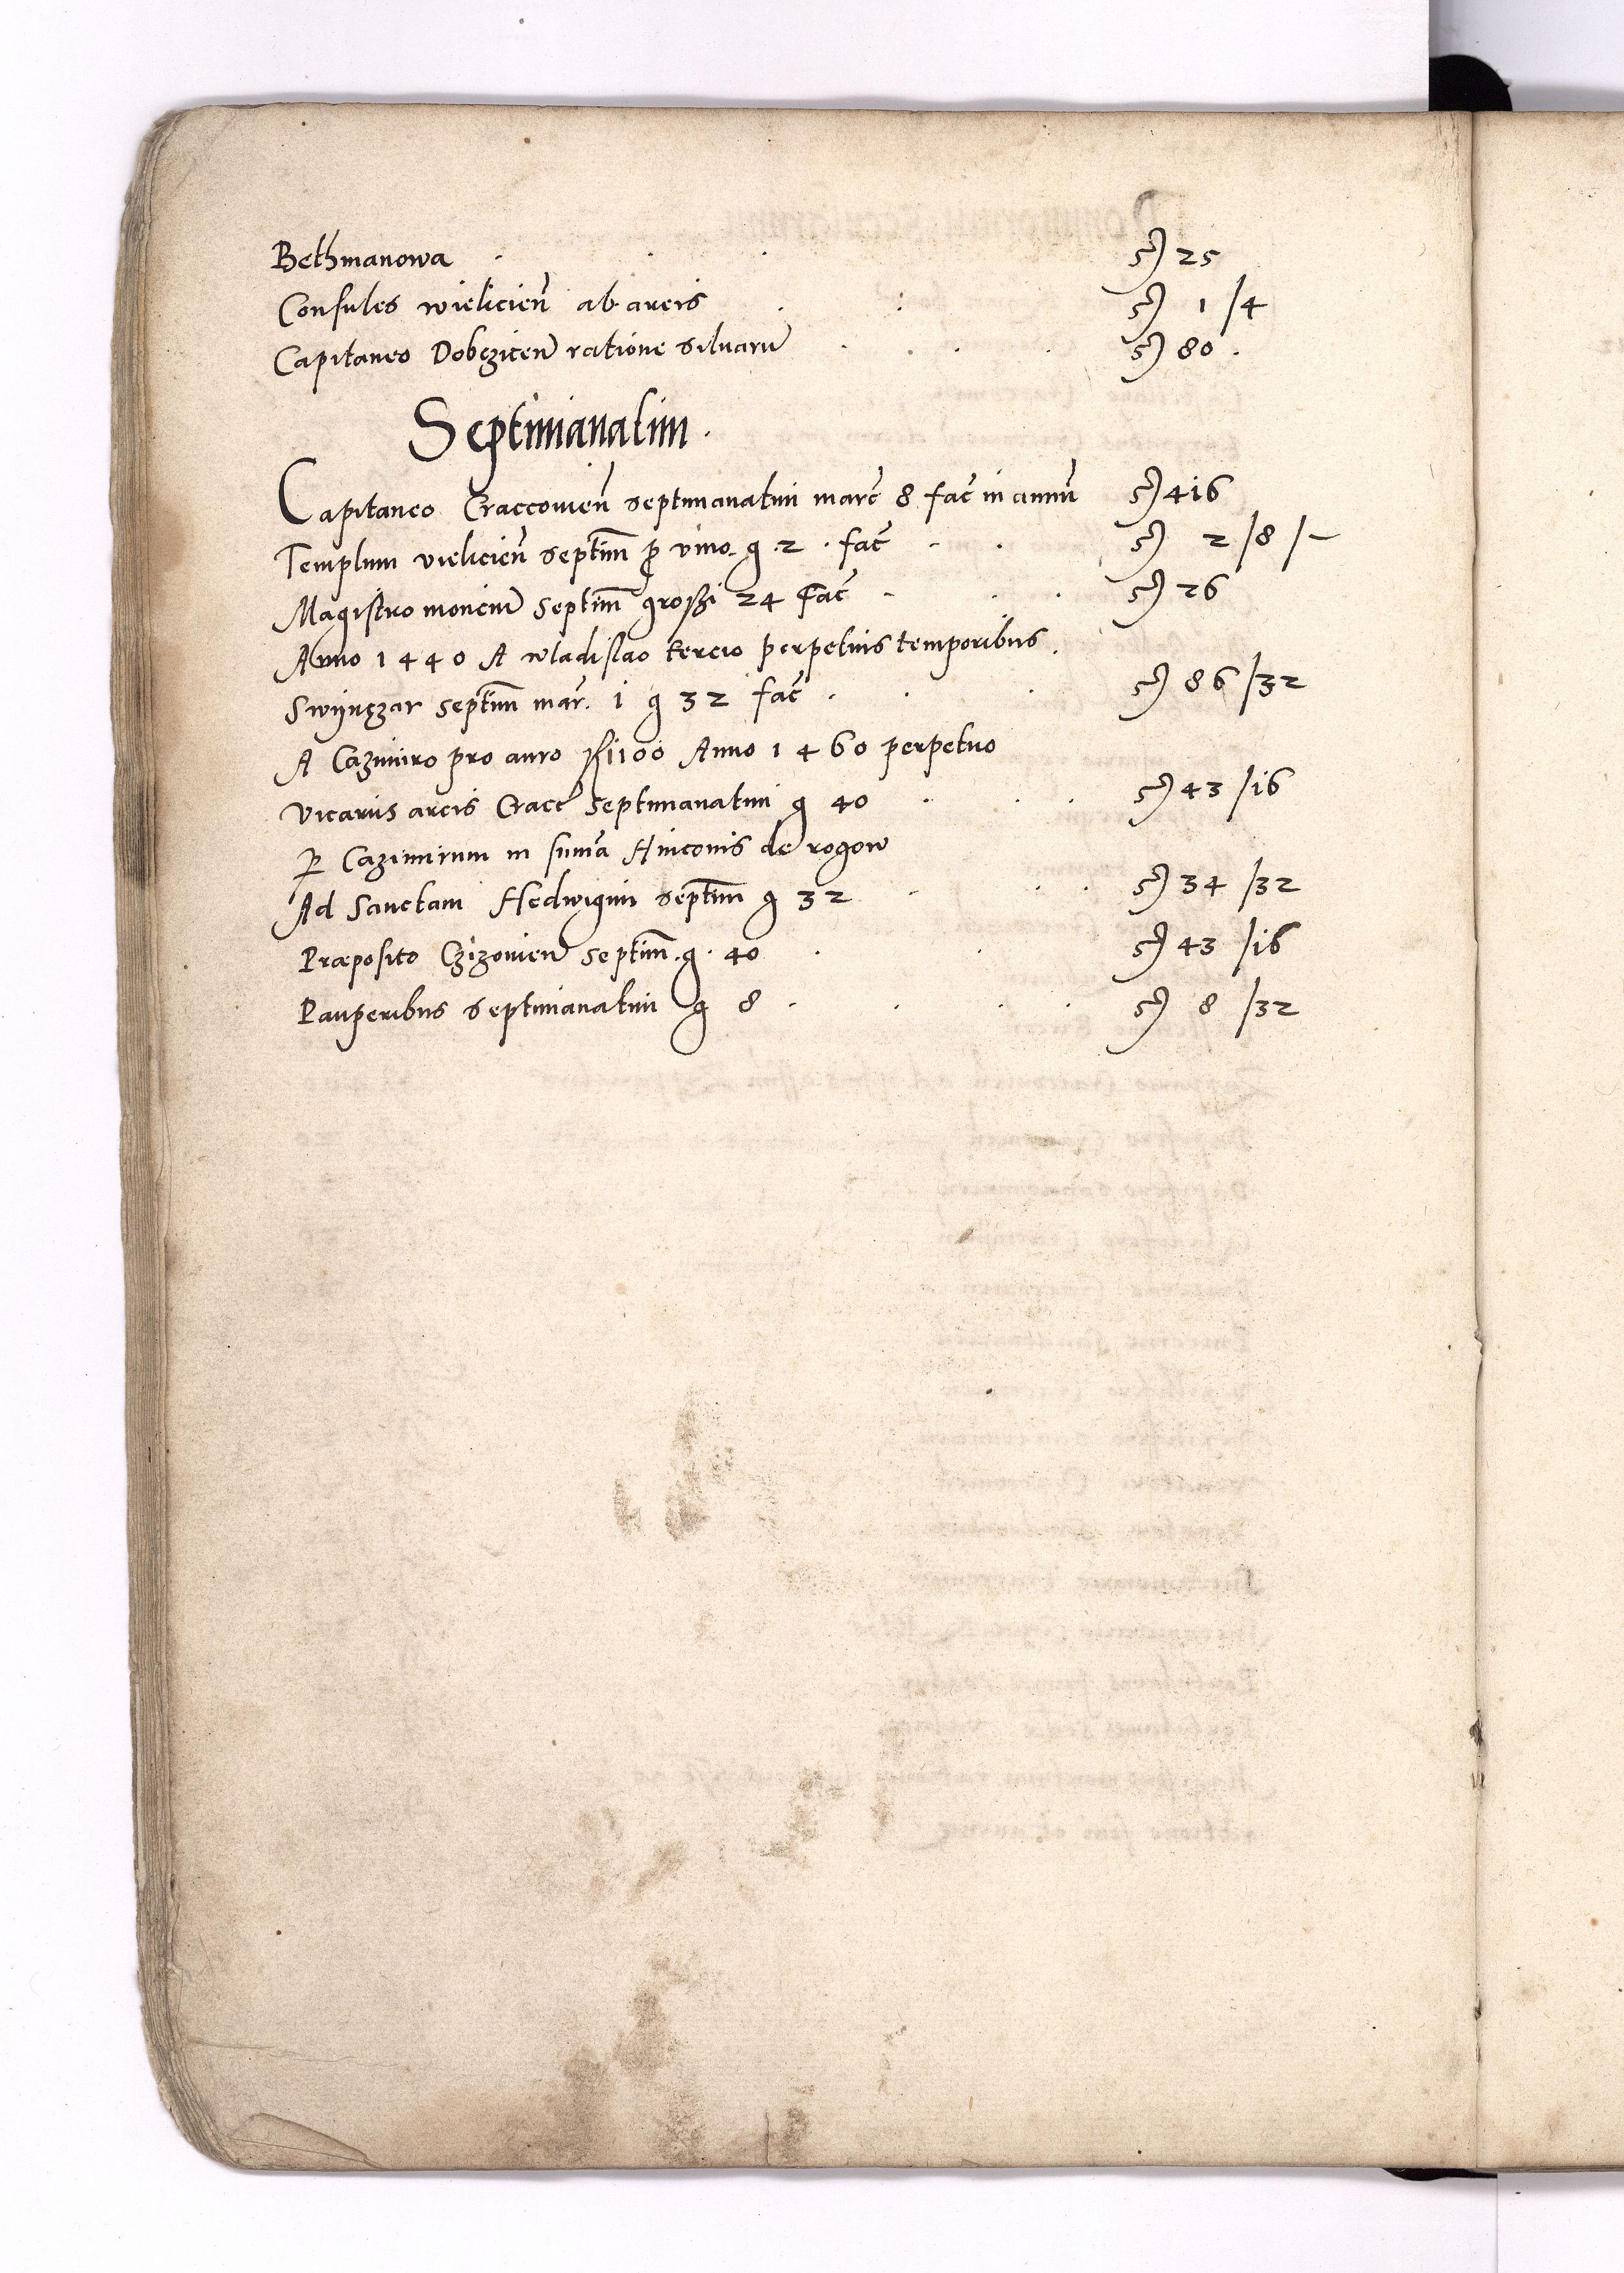 Bethmanowa . . . 25
Consules wielicien̄ ab areis . . 1 /4
Capitaneo Dobczicen̄ ratione siluarū . . . 80 .
Septimanatim .
Capitaneo Craccouien̄ septimanatim marc̄ 8 fac̄ in annū 416
Templum vielicien̄ septim̄ ꝓ vino . g . 2 . fac̄ . . 2 /8 /-
Magistro monciu septim̄ grossi 24 Fac̄ . . . 26
Anno 1440 A wladislao tercio perpetuis temporibus .
Swÿnczar septim̄ mar. 1 g 32 fac̄ . . . 86 /32
A Cazimiro pro auro 1100 Anno 1460 perpetuo
Vicariis arcis Cracc̄ septimanatim g 40 . . . 43 /16
ꝑ Cazimirum in sum̄a Hinconis de rogow
Ad Sanctam Hedwigim septim̄ g 32 . . . 34 /32
Præposito Czizouien̄ septim̄ . g . 40 . . 43 /16
Pauperibus septimanatim g 8 . . . . 8 /32